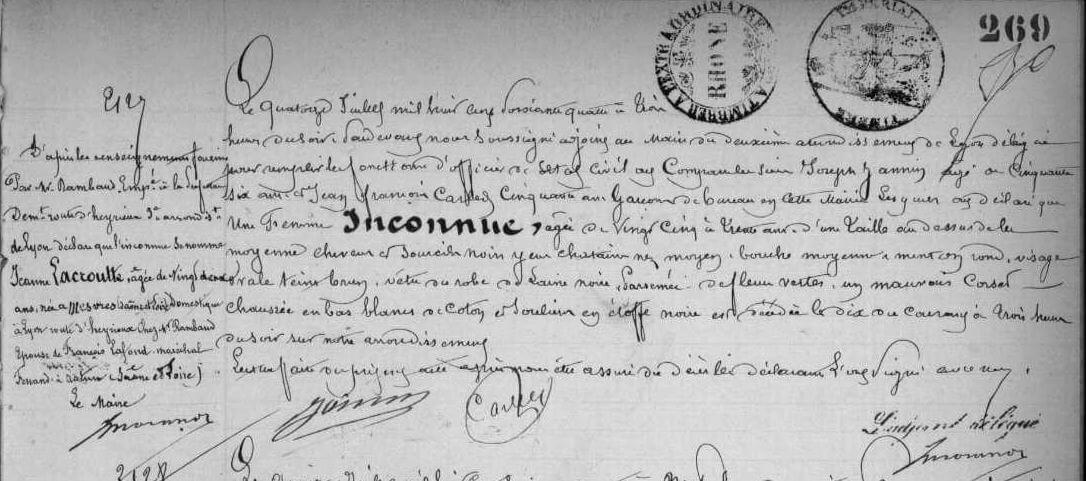 269
A L'EXTRAORDINAIRE
RHONE
A TIMBRER
TIMBRE IMPERIAL
2127
Le quatorze Juillet mil huit cent soixante quatre à trois
heures du soir, pardevant nous soussigné adjoint au Maire du deuxième arrondissement de Lyon délégué
pour remplir les fonctions d'officier de l'état civil ont comparu les sieurs Joseph Jannin âgé de cinquante
six ans et Jean François cinquante ans Garçons de bureau en cette Mairie lesquels ont déclaré que
Une Femme Inconnue, âgée de vingt cinq à trente ans, d'une taille au dessus de la
moyenne cheveux et sourcils noirs yeux chatain nez moyen, bouche moyenne menton rond, visage
ovale teint brun, vêtue du robe de laine noire, parsemée de fleurs vertes, un mauvais corset
chaussée en bas blancs de coton et souliers en étoffe noire est décédée le dix du courant à trois heures
du soir sur notre arrondissement
Lecture faite du présent acte après nous être assuré du décès les déclarants l'ont signé avec nous.
D'après les renseignements fournis
Par Mr Rambaud Empé à la
Demt route d'heyrieux 3e arrondt
de Lyon déclare que l'inconnue se nomme
Jeanne Lacroutte, âgée de vingt deux
ans, née à Mesvres Saône et Loire Domestique
à Lyon route d'heyrieux chez Mr Rambaud
Epouse de François Lafond maréchal
ferrand à (Saône et Loire)
Le Maire
L'adjoint délégué
2128